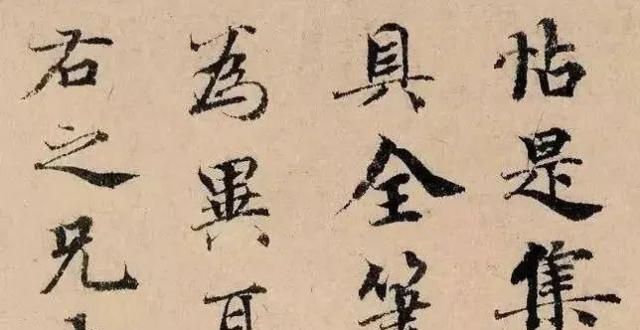 帖是集
具全
為異
右之兄